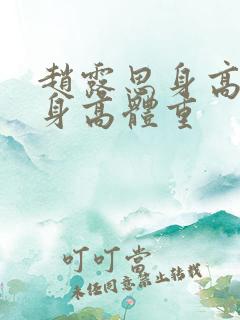 趙露思身高
身高體重
叮叮當
未經同意禁止轉載